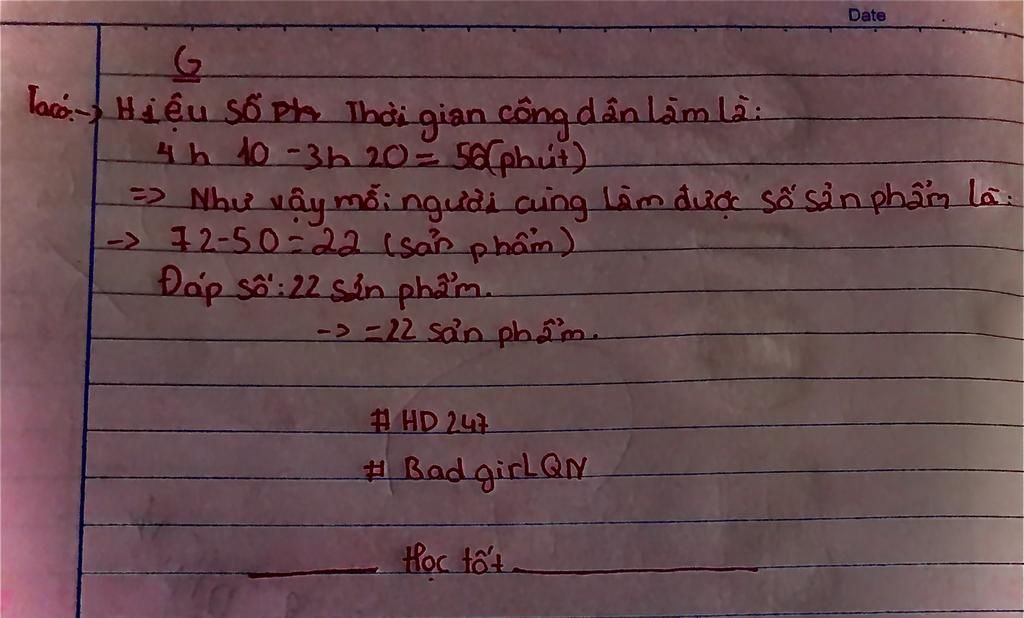 Date
G
Ta có: -> Hiệu số Thời gian công dân làm là:
4 h 10 - 3h 20 = 50 (phút)
=> Như vậy mỗi người cùng làm được số sản phẩm là:
-> 72-50=22 (sản phẩm)
Đáp số: 22 sản phẩm.
-> =22 sản phẩm.
# HD 247
# Bad girL QN
Học tốt